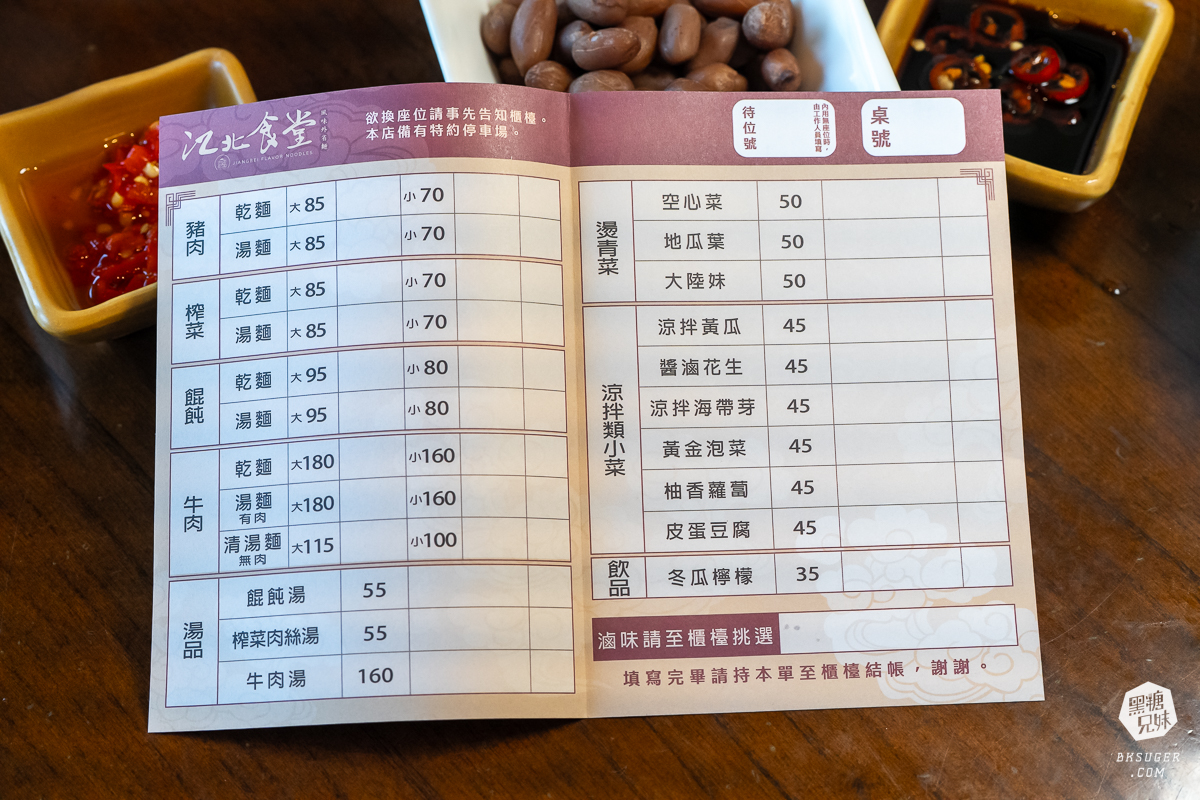 江北食堂
風味外省麵
JIANGBEI FLAVOR NOODLES
欲換座位請事先告知櫃檯。
本店備有特約停車場。
待位號
內用無座位時,
由工作人員填寫
桌號
豬肉
乾麵 大85 小70
湯麵 大85 小70
榨菜
乾麵 大85 小70
湯麵 大85 小70
餛飩
乾麵 大95 小80
湯麵 大95 小80
牛肉
乾麵 大180 小160
湯麵 有肉 大180 小160
清湯麵 無肉 大115 小100
湯品
餛飩湯 55
榨菜肉絲湯 55
牛肉湯 160
燙青菜
空心菜 50
地瓜葉 50
大陸妹 50
涼拌類小菜
涼拌黃瓜 45
醬滷花生 45
涼拌海帶芽 45
黃金泡菜 45
柚香蘿蔔 45
皮蛋豆腐 45
飲品
冬瓜檸檬 35
滷味請至櫃檯挑選
填寫完畢請持本單至櫃檯結帳,謝謝。
黑糖兄妹
BKSUGER
.COM